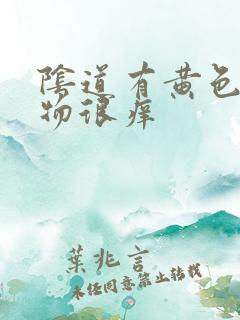 陰道有黄色
物很痒
葉兆言
未经同意禁止转载